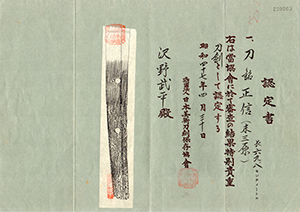 認定書
一、刀 銘 正信(末三原)
長 六九、八センチメートル
右は當協會に於て審査の結果特別貴重
刀剣として認定する
昭和四十七年四月三十日
財團法人日本美術刀剣保存協會
沢野武平殿